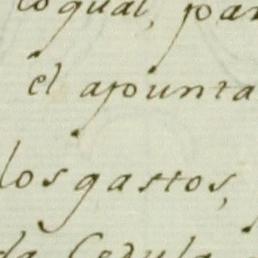 lo qual, par
el apunta
los gastos,
da Cedula